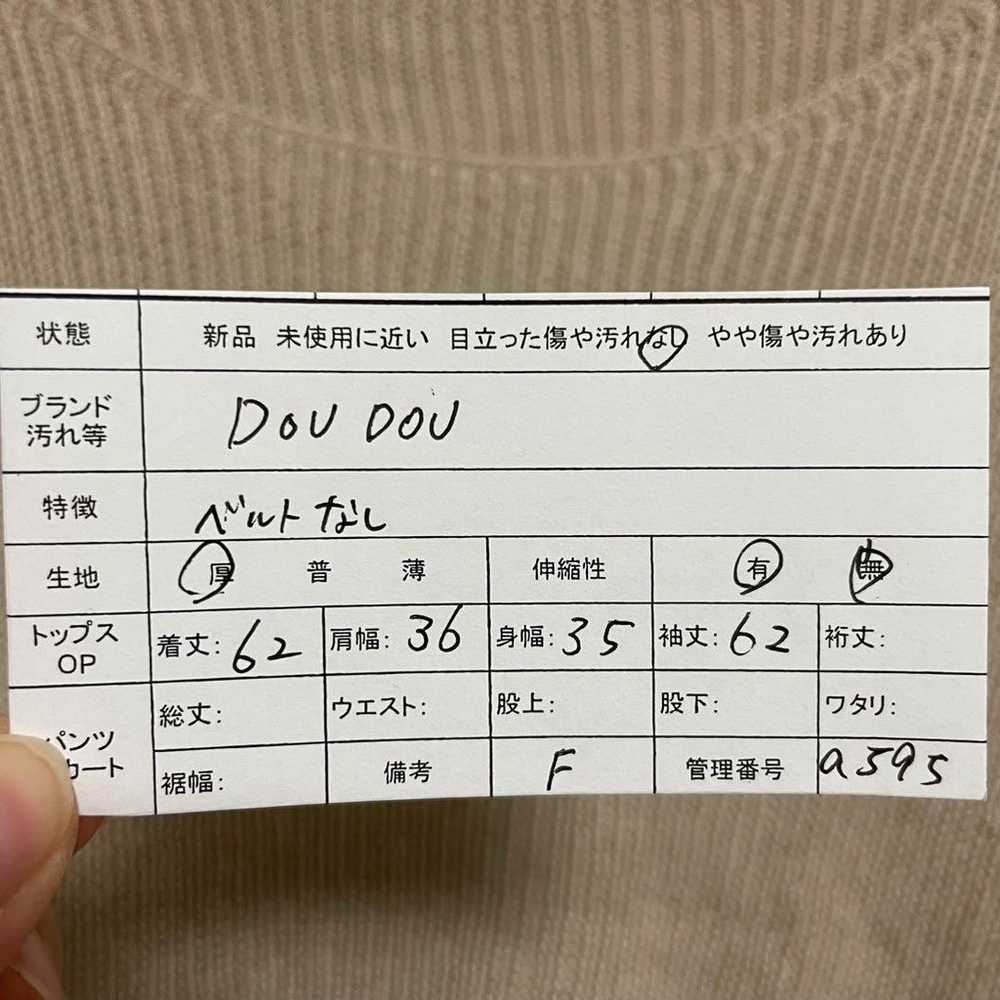 状態 新品 未使用に近い 目立った傷や汚れなし やや傷や汚れあり
ブランド
汚れ等
DOU DOU
特徴 ベルトなし
生地 厚 普 薄 伸縮性 有 無
トップス
OP
着丈: 62 肩幅: 36 身幅: 35 袖丈: 62 裄丈:
パンツ
カート
総丈: ウエスト: 股上: 股下: ワタリ:
裾幅: 備考 F 管理番号 a595